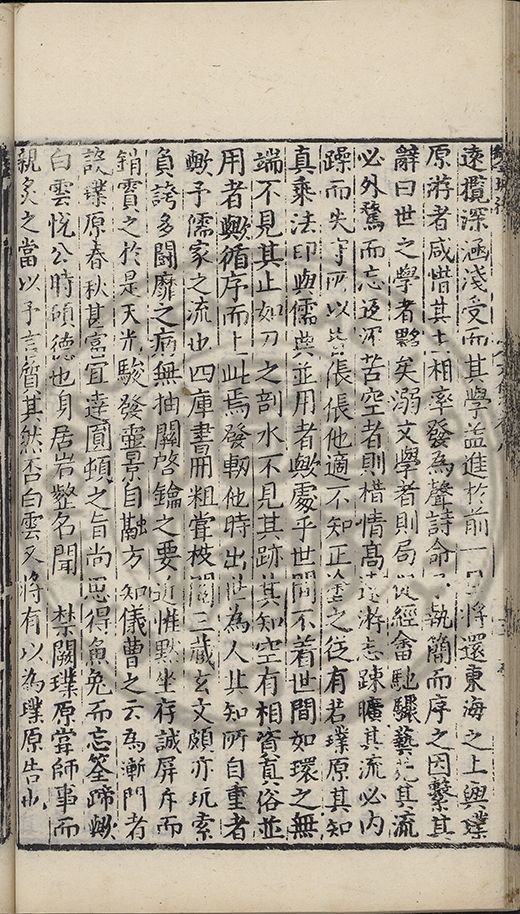 遠攬深涵淺受而其學益進於前一日將還東海之上與璞
原游者咸惜其去相率發為聲詩命予執簡而序之因繫其
辭曰世之學者夥矣溺文學者則局促經畬馳驟藝苑其流
必外騖而忘返沉苦空者則梏情高遠游志疎曠其流必內
躁而失守所以倀倀他適不知正塗之從有若璞原其知
真乘法印與儒典並用者歟處乎世間不着世間如環之無
端不見其止如刀之剖水不見其跡其知空有相資真俗並
用者歟循序而上此焉發軔他時出世為人其知所自重者
歟予儒家之流也四庫書冊粗甞披閱三藏玄文頗亦玩索
負誇多鬭靡之病無抽關啓鑰之要近惟默坐存誠屏斥而
銷霣之於是天光駿發靈景自融方知儀曹之云為漸門者
設璞原春秋甚富宜達圓頓之旨尚惡得魚兔而忘筌蹄歟
白雲悅公時碩德也身居岩壑名聞 禁闕璞原甞師事而
親炙之當以予言質其然否白雲又將有以為璞原告也